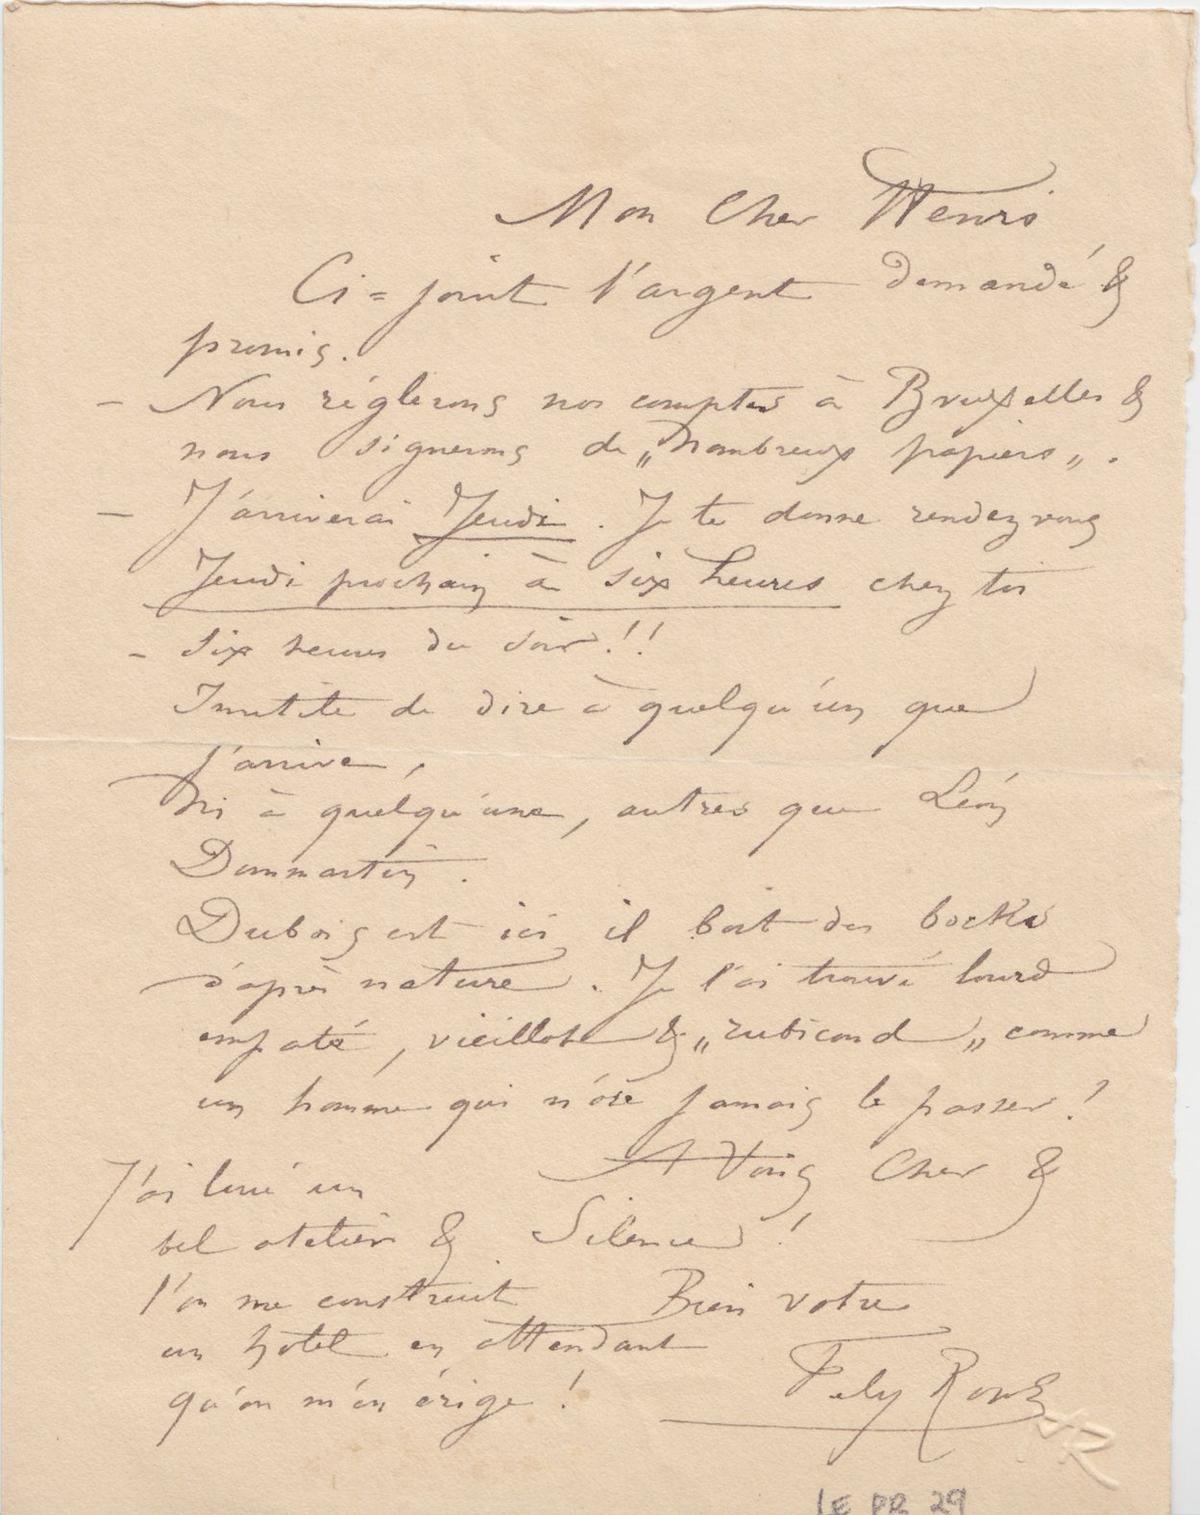 Mon Cher Henri
Ci=joint l'argent demandé &
promis.
– Nous règlerons nos comptes à Bruxelles &
nous signerons de „nombreux papiers„.
– J'arriverai Jeudi. Je te donne rendez vous
Jeudi prochain à six heures chez toi
– six heures du soir!!
Inutile de dire à quelqu'un que
j'arrive,
Ni à quelqu'une, autres que Léon
Dommartin.
Dubois est ici il boit des bocks
d'après nature. Je l'ai trouvé lourd
empaté, vieillot & „rubicond„ comme
un homme qui n'ose jamais le passer!
A Vous Cher &
Silence!
Bien votre
Fély Rops
J'ai loué un
bel atelier &
l'on me construit
un hôtel en attendant
qu'on m'en érige!
FR
LE PR 29